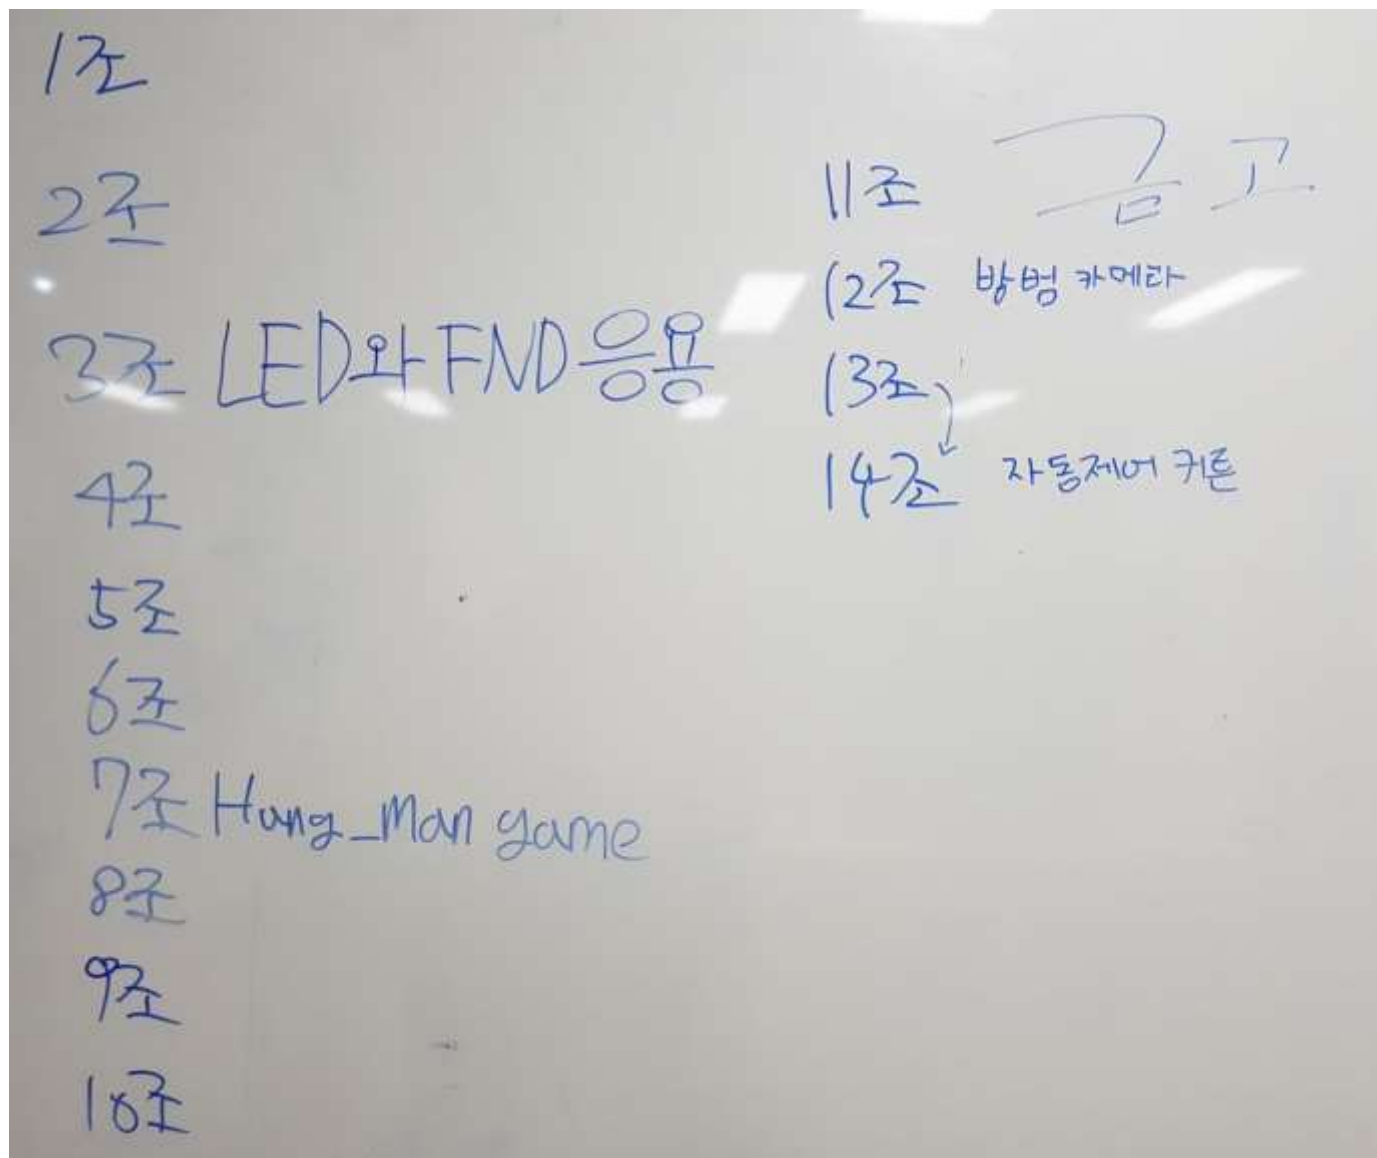 1조
2조
3조 LED와 FND 응용
4조
5조
6조
7조 Hang_man game
8조
9조
10조
11조 금고
12조 방범 카메라
13조
14조 자동제어 커튼